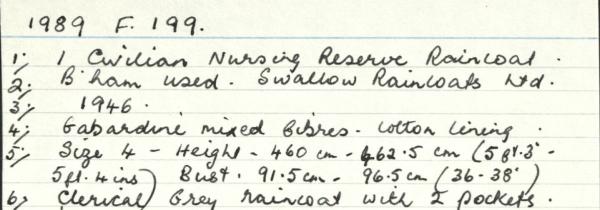 1989 F. 199.
1; 1 Civilian Nursing Reserve Raincoat.
2; B'ham used. Swallow Raincoats Ltd.
3; 1946.
4; Gabardine mixed fibres - cotton lining.
5; Size 4 - Height - 460 cm - 462.5 cm (5ft.3" -
5ft. 4 ins) Bust. 91.5cm - 96.5cm (36-38")
6; Clerical Grey raincoat with 2 pockets.